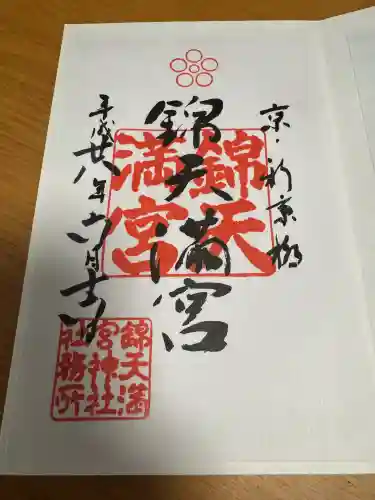 京・新京極
錦天満宮
錦天
満宮
平成廿八年六月十一日
錦天満
宮神社
社務所